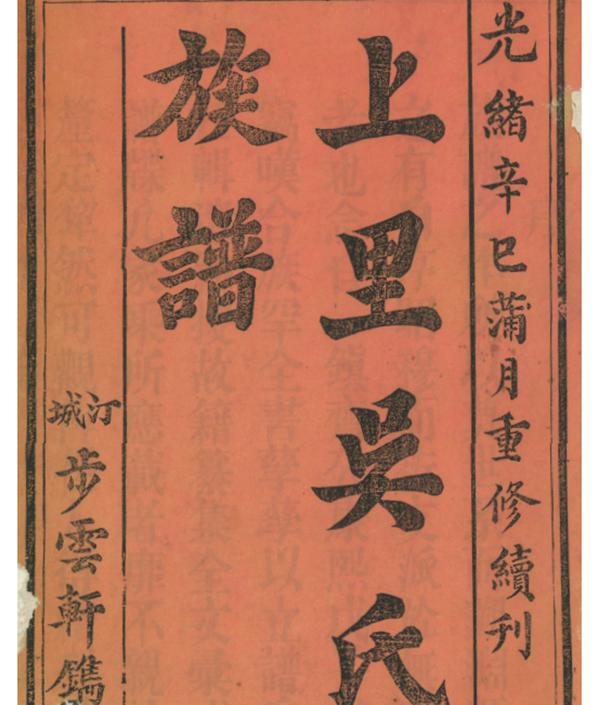 光緒辛巳蒲月重修續刊
上里吳氏
族譜
汀城步雲軒鐫